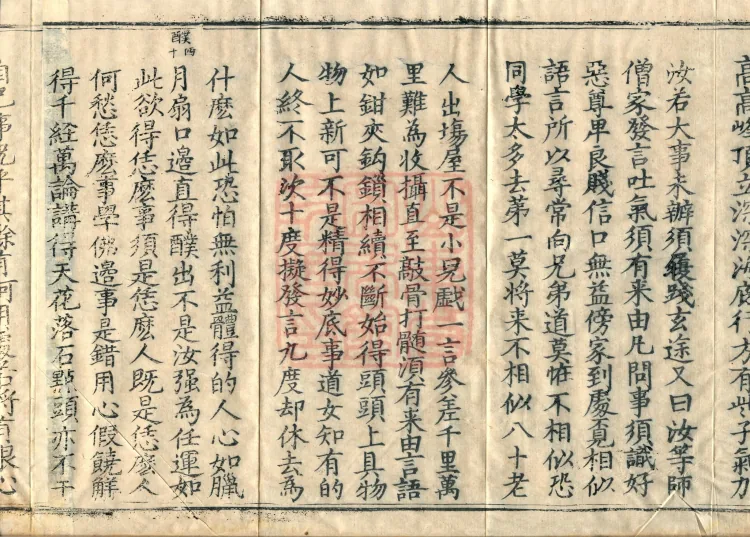 高高峰頂立深深海底行方有些子氣力
汝若大事未辦須履踐玄途又曰汝等師
僧家發言吐氣須有来由凡問事須識好
惡尊卑良賤信口無益傍家到處覔相似
語言所以尋常向兄弟道莫恠不相似恐
同學太多去第一莫將来不相似八十老
人出塲屋不是小兒戯一言參差千里萬
里難為收攝直至敲骨打髓湏有来由言語
如鉗夾鈎鎖相續不斷始得頭頭上具物
物上新可不是精得妙底事道女知有的
人終不取次十度擬發言九度却休去為
什麽如此恐怕無利益體得的人心如臘
月扇口邊直得醭出不是汝强為任運如
此欲得恁麽事須是恁麽人既是恁麽人
何愁恁麽事學佛邊事是錯用心假饒觧
得千經萬論講得天花落石點頭亦不干
自己事况乎其餘有何用處若將有限心